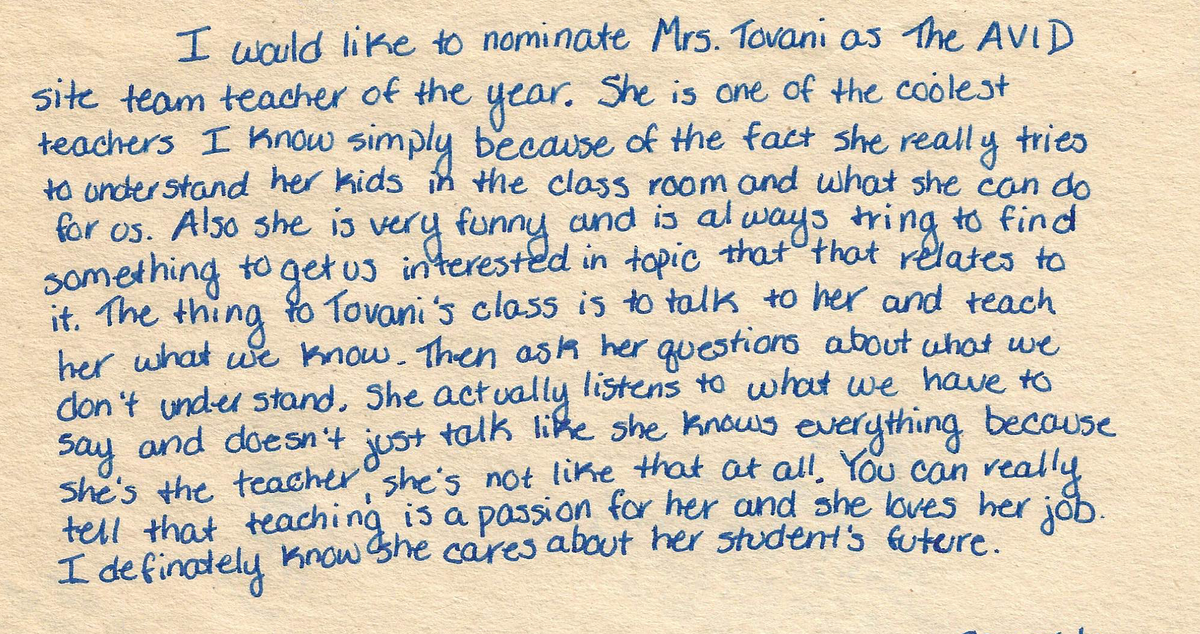 I would like to nominate Mrs. Tovani as The AVID
site team teacher of the year. She is one of the coolest
teachers I know simply because of the fact she really tries
to understand her kids in the class room and what she can do
for us. Also she is very funny and is always tring to find
something to get us interested in topic that that relates to
it. The thing to Tovani's class is to talk to her and teach
her what we know. Then ask her questions about what we
don't understand. She actually listens to what we have to
say and doesn't just talk like she knows everything because
she's the teacher, she's not like that at all. You can really
tell that teaching is a passion for her and she loves her job.
I definately know she cares about her student's future.